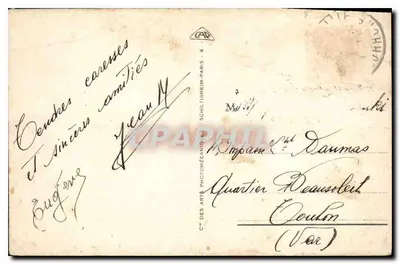 Tendres caresses
et sincères amitiés
Jean M
Eugène
CAP
Cie DES ARTS PHOTOMÉCANIQUES SCHILTIGHEIM-PARIS - 4
CPARAMA
M
ki
Impasse Ste Daumas
Quartier Beausoleil
Toulon
(Var)